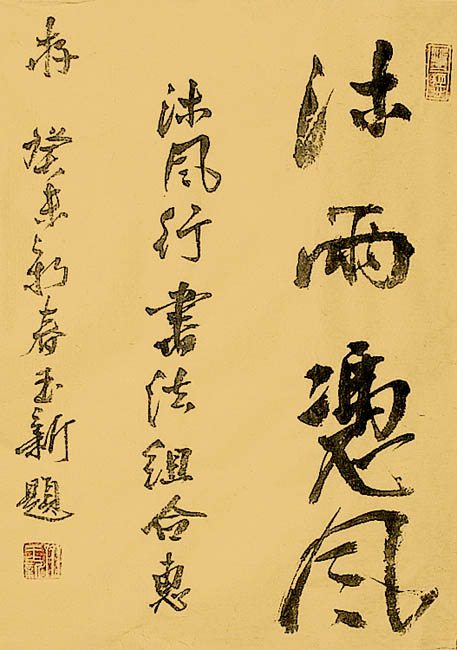 沐雨憑風
沐風行書法組合惠
存 癸未新春玉新題